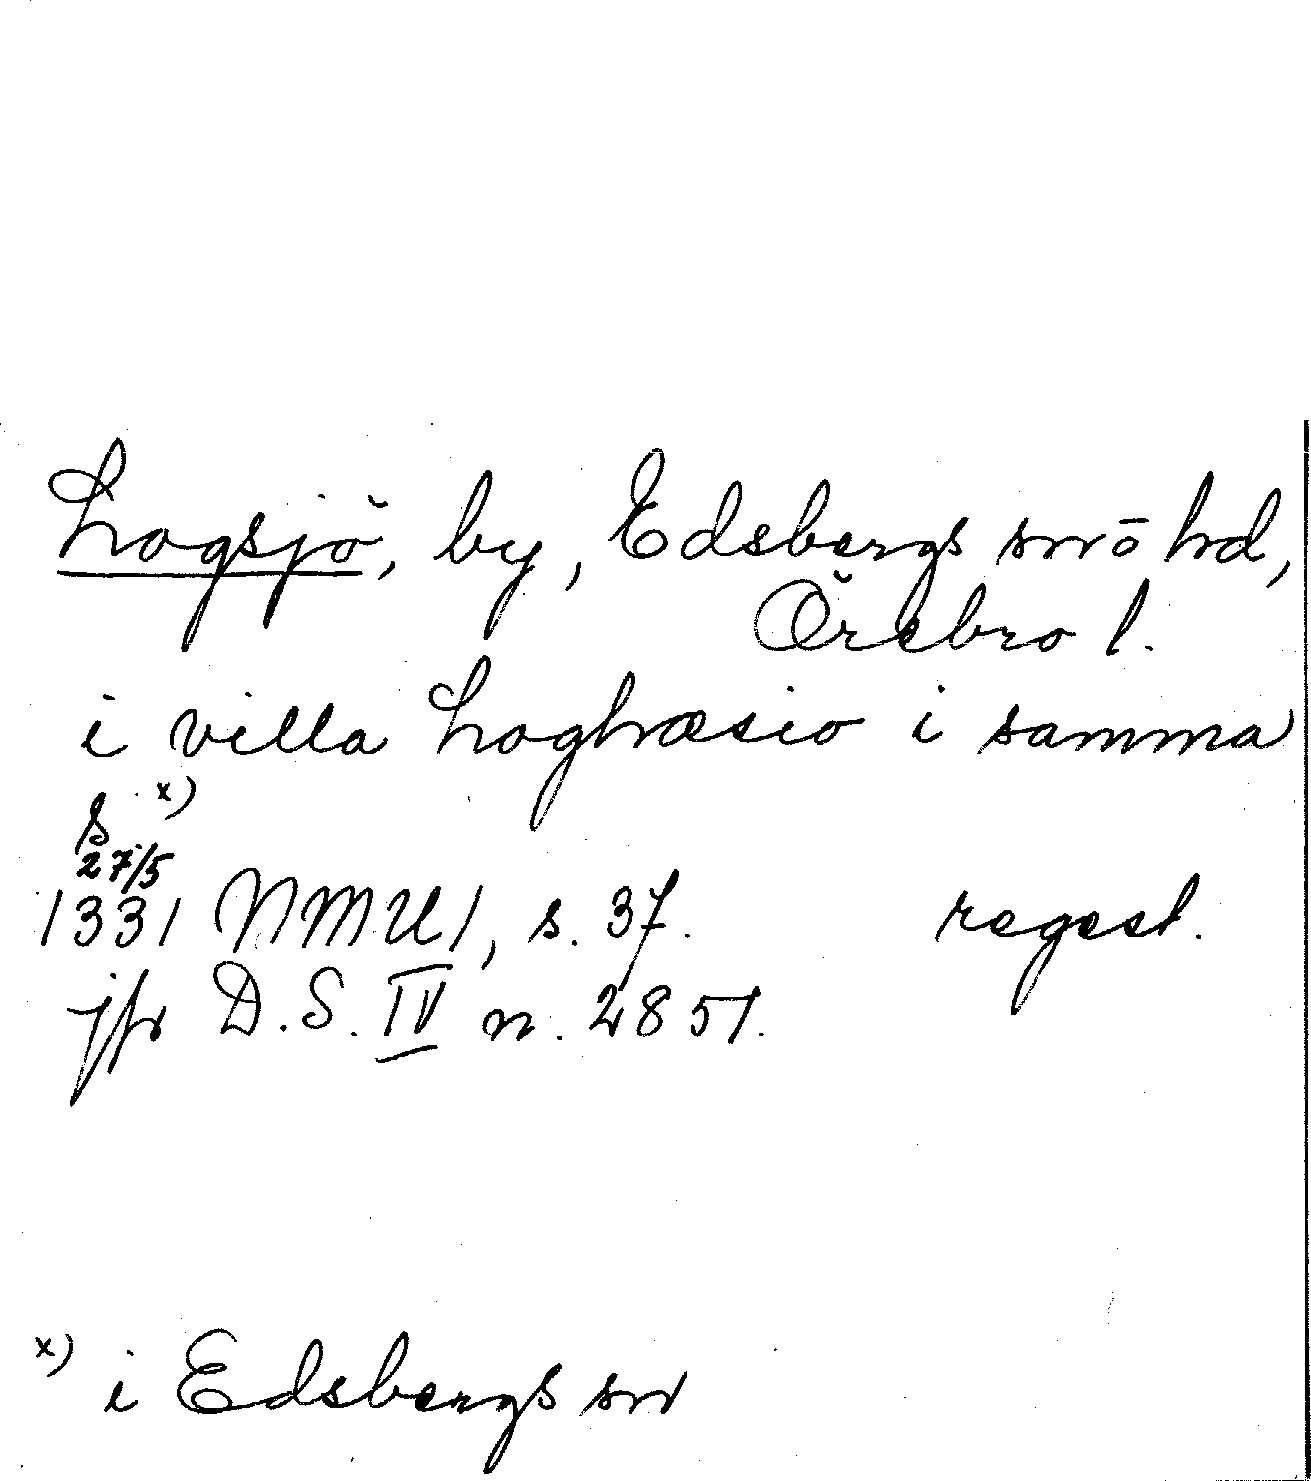 Logsjö, by, Edsbergs sn ō hd,
Örebro l.
i villa Loghæsio i samma
s x)
27/5
1331 NMU1, s. 37. regest.
jfr D.S. IV n. 2851.
x) i Edsbergs sn